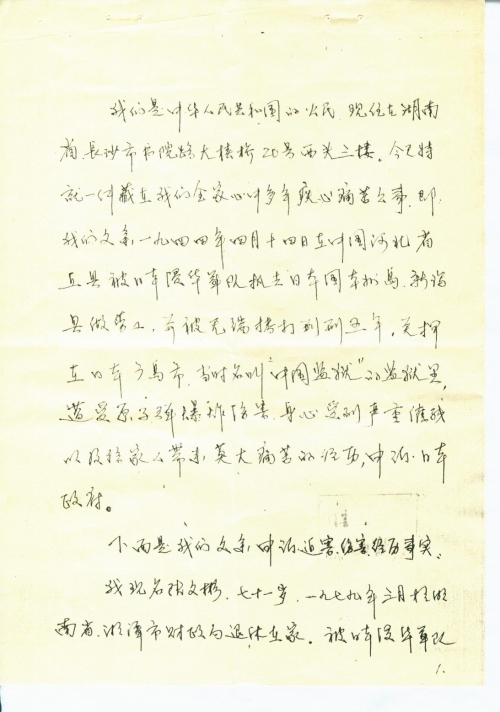 我们是中华人民共和国的公民,现住在湖南
省长沙市书院路大椿桥20号西头三楼。今天特
就一件藏在我们全家心中多年疾心痛苦之事,即
我们父亲一九四四年四月十四日在中国河北省
县被日本侵华军队抓去日本国本州岛、新泻
县做劳工,并被无端拷打判刑五年,关押
在日本广岛市,当时名叫“中国监狱”的监狱里,
遭受原子弹爆炸伤害,身心受到严重摧残
以及给家人带来莫大痛苦的经历,申诉日本
政府。
下面是我们父亲申诉迫害、伤害经历事实、
我现名张文彬,七十一岁,一九七九年三月於湖
南省、湘潭市财政局退休在家。被日本侵华军队
1.